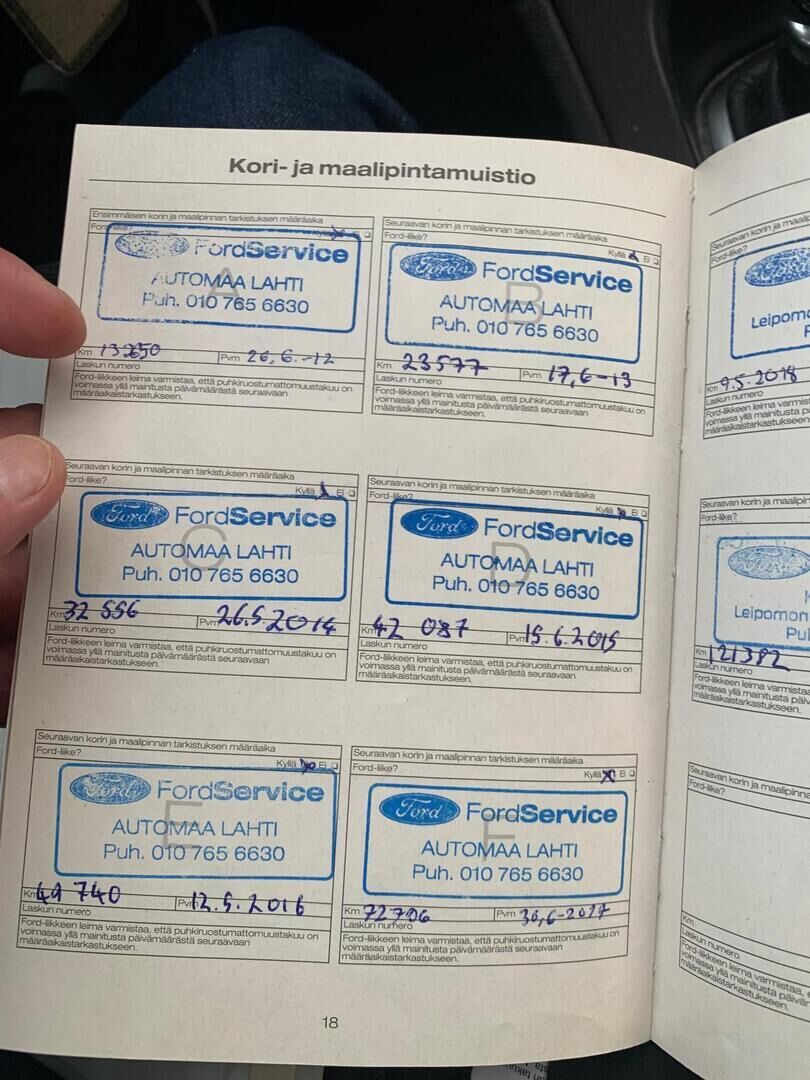 Kori- ja maalipintamuistio
Ensimmäisen korin ja maalipinnan tarkistuksen määräaika
Ford-liike?
Kyllä Ei
Ford FordService
A
AUTOMAA LAHTI
Puh. 010 765 6630
Km 13250
Pvm 26,6.-12
Laskun numero
Ford-liikkeen leima varmistaa, että puhkiruostumattomuustakuu on
voimassa yllä mainitusta päivämäärästä seuraavaan
määräaikaistarkastukseen.
Seuraavan korin ja maalipinnan tarkistuksen määräaika
Ford-liike?
Kyllä Ei
Ford FordService
B
AUTOMAA LAHTI
Puh. 010 765 6630
Km 23577
Pvm 17,6-13
Laskun numero
Ford-liikkeen leima varmistaa, että puhkiruostumattomuustakuu on
voimassa yllä mainitusta päivämäärästä seuraavaan
määräaikaistarkastukseen.
Seuraavan korin ja maalipinnan tarkistuksen määräaika
Ford-liike?
Kyllä Ei
Ford FordService
C
AUTOMAA LAHTI
Puh. 010 765 6630
Km 32 556
Pvm 26.5.2014
Laskun numero
Ford-liikkeen leima varmistaa, että puhkiruostumattomuustakuu on
voimassa yllä mainitusta päivämäärästä seuraavaan
määräaikaistarkastukseen.
Seuraavan korin ja maalipinnan tarkistuksen määräaika
Ford-liike?
Kyllä Ei
Ford FordService
D
AUTOMAA LAHTI
Puh. 010 765 6630
Km 42 087
Pvm 15.6.2015
Laskun numero
Ford-liikkeen leima varmistaa, että puhkiruostumattomuustakuu on
voimassa yllä mainitusta päivämäärästä seuraavaan
määräaikaistarkastukseen.
Seuraavan korin ja maalipinnan tarkistuksen määräaika
Ford-liike?
Kyllä Ei
Ford FordService
E
AUTOMAA LAHTI
Puh. 010 765 6630
Km 49 740
Pvm 12.5.2016
Laskun numero
Ford-liikkeen leima varmistaa, että puhkiruostumattomuustakuu on
voimassa yllä mainitusta päivämäärästä seuraavaan
määräaikaistarkastukseen.
Seuraavan korin ja maalipinnan tarkistuksen määräaika
Ford-liike?
Kyllä Ei
Ford FordService
F
AUTOMAA LAHTI
Puh. 010 765 6630
Km 72706
Pvm 30,6-2017
Laskun numero
Ford-liikkeen leima varmistaa, että puhkiruostumattomuustakuu on
voimassa yllä mainitusta päivämäärästä seuraavaan
määräaikaistarkastukseen.
18
Seuraavan korin ja maalipin
Ford-liike?
Ford
Leipomo
Km 9.5.2018
Laskun numero
Ford-liikkeen leima varmist
voimassa yllä mainitusta p
määräaikaistarkastukseen.
Seuraavan korin ja maalipin
Ford-liike?
Ford
Leipomon
Pu
Km 121392
Laskun numero
Ford-liikkeen leima varmista
voimassa yllä mainitusta päiv
määräaikaistarkastukseen.
Seuraavan korin ja maalipinna
Ford-liike?
Km
Laskun numero
Ford-liikkeen leima varmistaa, e
voimassa yllä mainitusta päivä
määräaikaistarkastukseen.